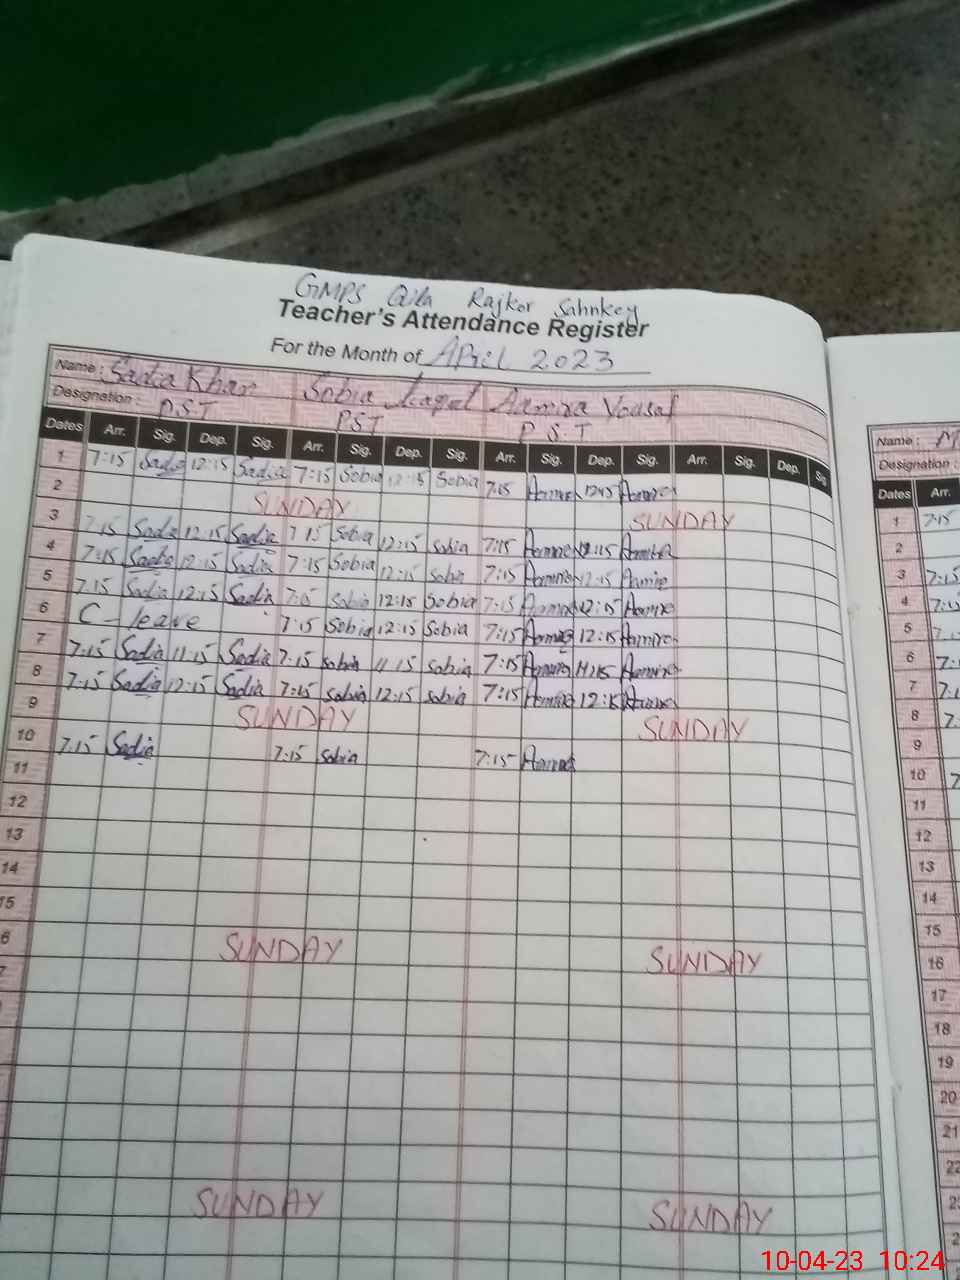 GMPS Qila Rajkor Sahnkey
Teacher's Attendance Register
For the Month of April 2023
Name: Sadia Khan Sobia Aamira Yousaf
Designation: P.S.T PST P.S.T
Dates Arr. Sig. Dep. Sig. Arr. Sig. Dep. Sig. Arr. Sig. Dep. Sig. Arr. Sig. Dep. Sig
1 7:15 Sadia 12:15 Sadia 7:15 Sobia 12:15 Sobia 7:15 12:15
2 SUNDAY SUNDAY
3 7:15 Sadia 12:15 Sadia 7:15 Sobia 12:15 Sobia 7:15 12:15
4 7:15 Sadia 12:15 Sadia 7:15 Sobia 12:15 Sobia 7:15 12:15
5 7:15 Sadia 12:15 Sadia 7:15 Sobia 12:15 Sobia 7:15 12:15
6 C-leave 7:15 Sobia 12:15 Sobia 7:15 12:15
7 7:15 Sadia 11:15 Sadia 7:15 Sobia 11:15 Sobia 7:15 11:15
8 7:15 Sadia 12:15 Sadia 7:15 Sobia 12:15 Sobia 7:15 12:15
9 SUNDAY SUNDAY
10 7:15 Sadia 7:15 Sobia 7:15
11
12
13
14
15
6 SUNDAY SUNDAY
7
SUNDAY SUNDAY
Name: M
Designation:
Dates Arr.
1 7:15
2
3 7:15
4
5
6
7
8
9
10
11
12
13
14
15
16
17
18
19
20
21
22
10-04-23 10:24